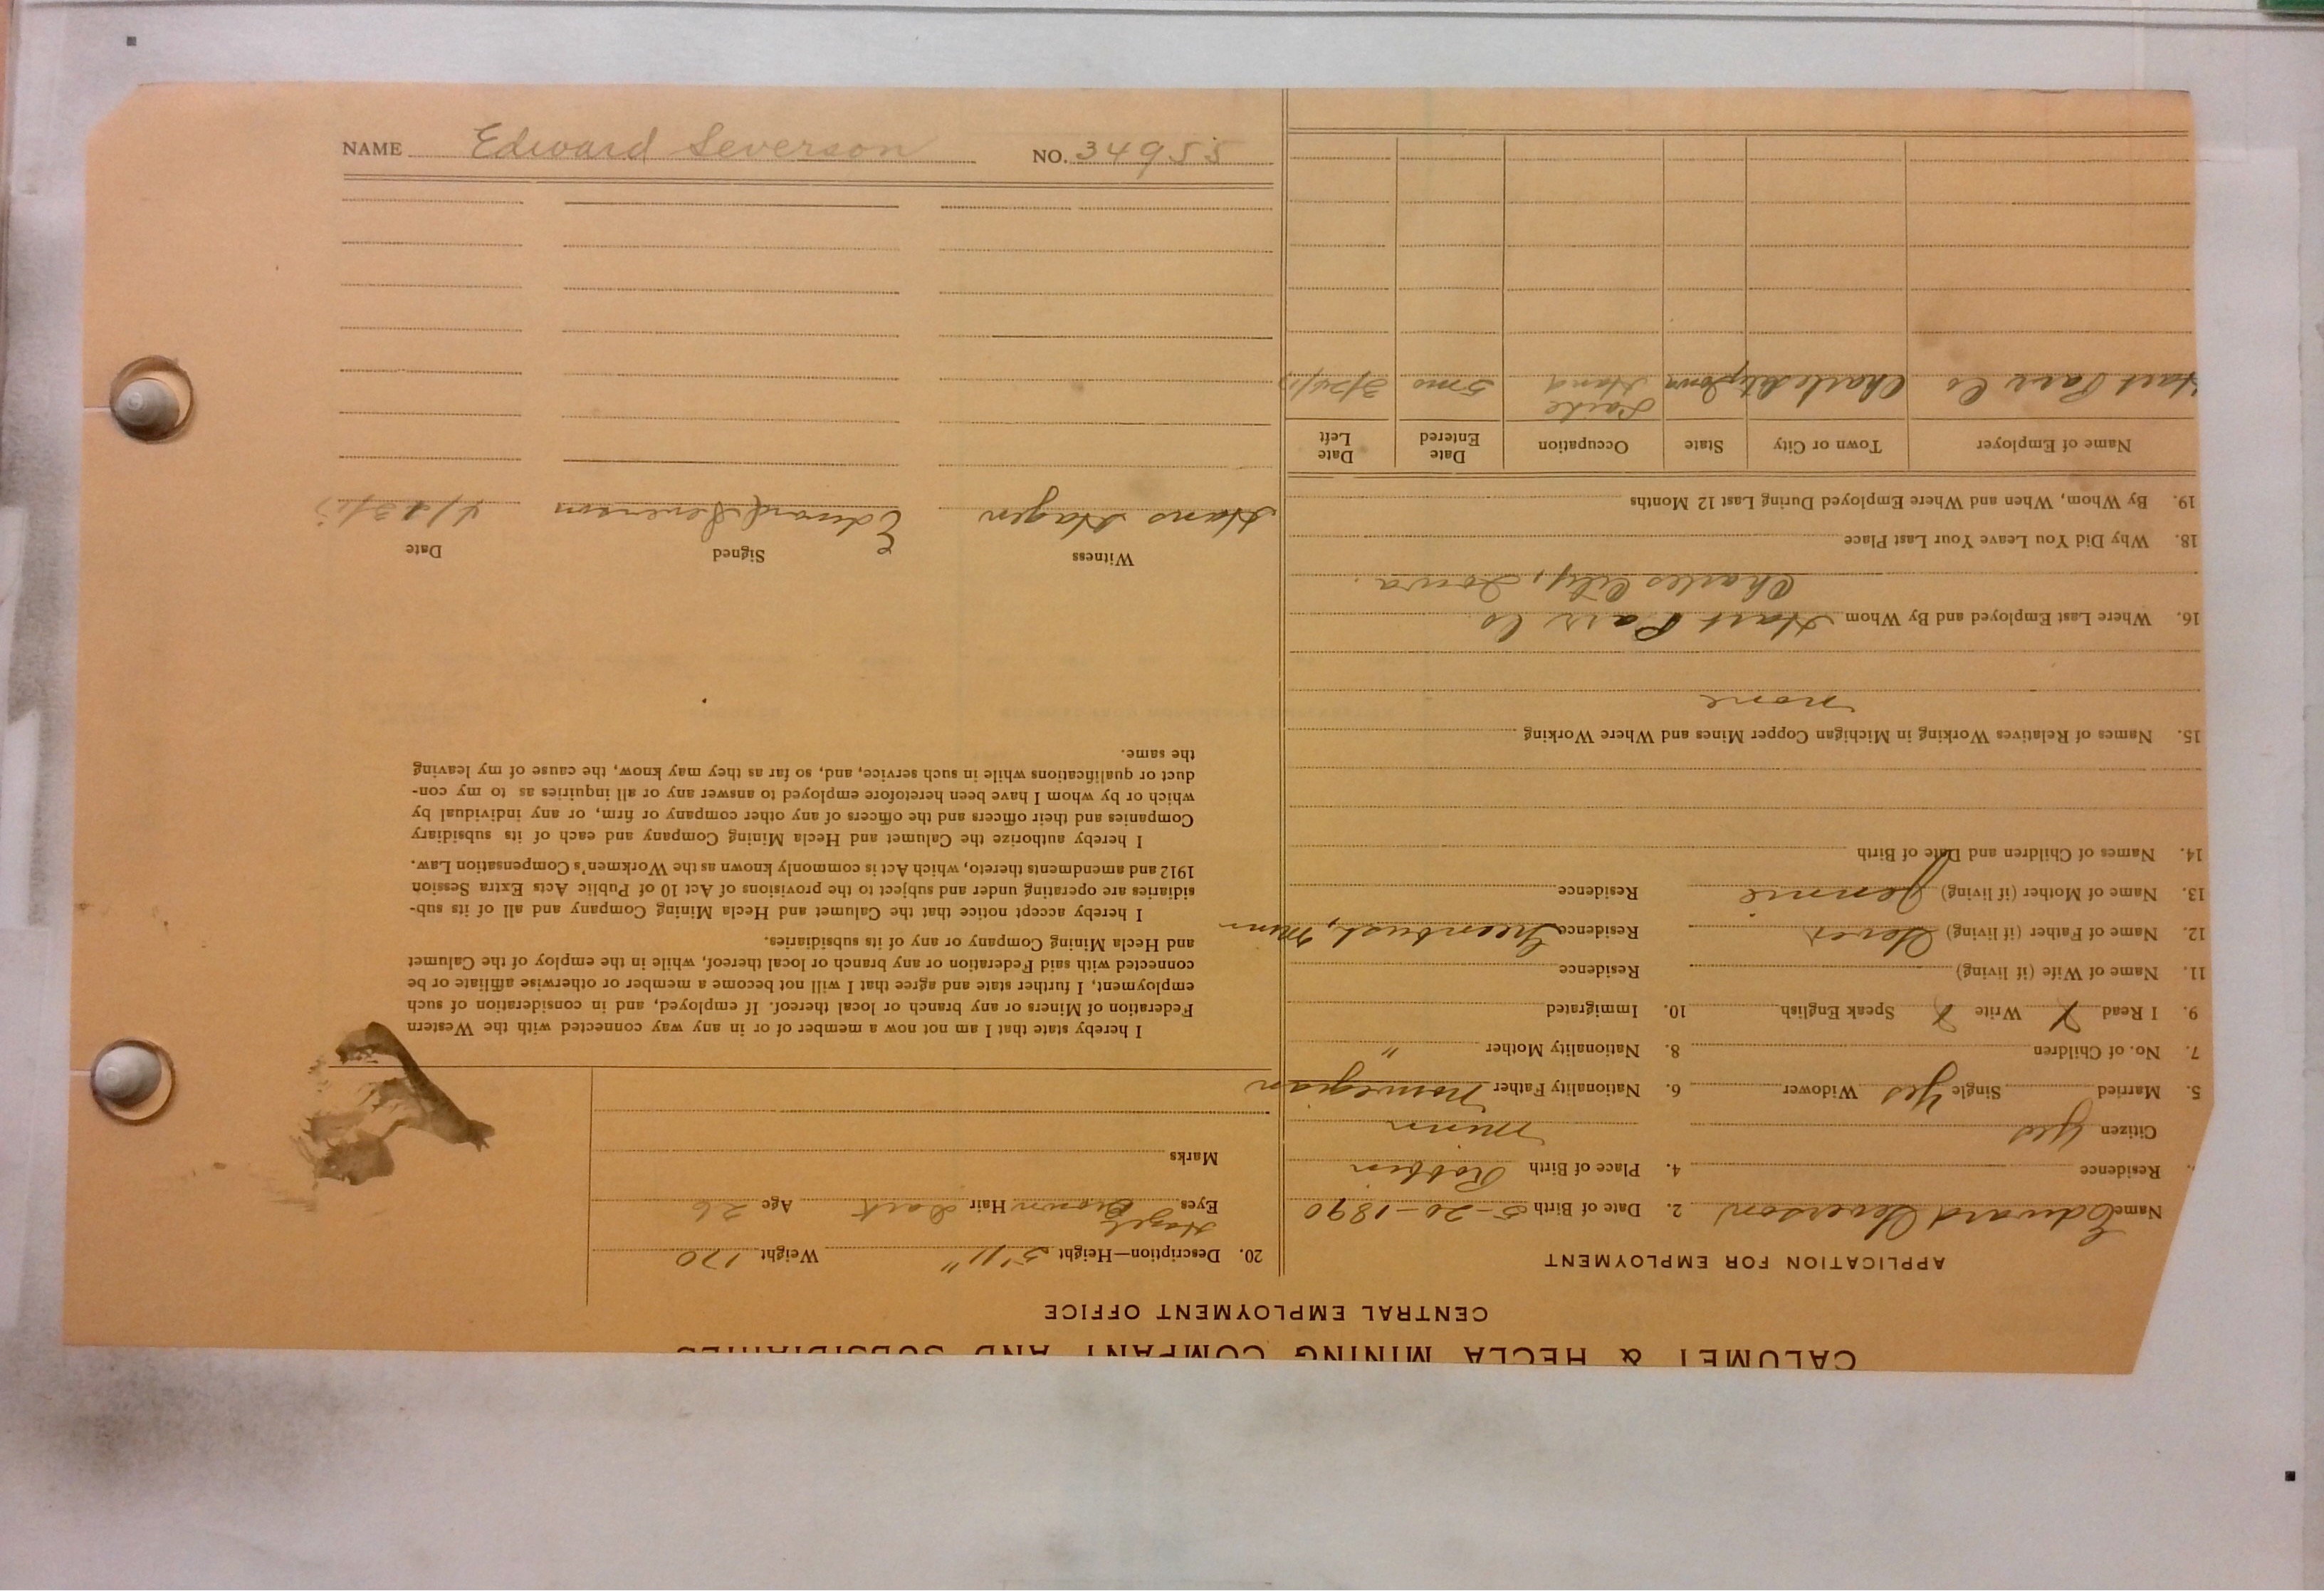 CALUMET & HECLA MINING COMPANY AND SUBSIDIARIES
CENTRAL EMPLOYMENT OFFICE
APPLICATION FOR EMPLOYMENT
Name Edward Severson 2. Date of Birth 5-20-1890
Residence 4. Place of Birth
Citizen Yes Minn
5. Married Single Yes Widower 6. Nationality Father Norwegian
7. No. of Children 8. Nationality Mother "
9. I Read X Write X Speak English 10. Immigrated
11. Name of Wife (if living) Residence
12. Name of Father (if living) Residence Greenbush, Minn
13. Name of Mother (if living) Jennie Residence
14. Names of Children and Date of Birth
15. Names of Relatives Working in Michigan Copper Mines and Where Working
None
16. Where Last Employed and By Whom Hart Parr Co.
Charles City, Iowa.
18. Why Did You Leave Your Last Place
19. By Whom, When and Where Employed During Last 12 Months
Name of Employer Town or City State Occupation Date Entered Date Left
Hart Parr Co Charles City Iowa Hand 5 mo
20. Description—Height 5'11" Weight 170
Hazel
Eyes Brown Hair Dark Age 26
Marks
I hereby state that I am not now a member of or in any way connected with the Western
Federation of Miners or any branch or local thereof. If employed, and in consideration of such
employment, I further state and agree that I will not become a member or otherwise affiliate or be
connected with said Federation or any branch or local thereof, while in the employ of the Calumet
and Hecla Mining Company or any of its subsidiaries.
I hereby accept notice that the Calumet and Hecla Mining Company and all of its sub-
sidiaries are operating under and subject to the provisions of Act 10 of Public Acts Extra Session
1912 and amendments thereto, which Act is commonly known as the Workmen's Compensation Law.
I hereby authorize the Calumet and Hecla Mining Company and each of its subsidiary
Companies and their officers and the officers of any other company or firm, or any individual by
which or by whom I have been heretofore employed to answer any or all inquiries as to my con-
duct or qualifications while in such service, and, so far as they may know, the cause of my leaving
the same.
Witness Signed Date
Hans Hagen Edward Severson
NAME Edward Severson NO. 34955